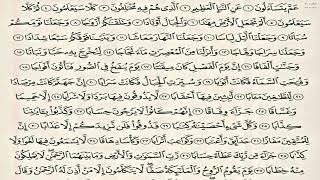 عَمَّ يَتَسَاءَلُونَ ١ عَنِ النَّبَإِ الْعَظِيمِ ٢ الَّذِي هُمْ فِيهِ مُخْتَلِفُونَ ٣ كَلَّا سَيَعْلَمُونَ ٤ ثُمَّ كَلَّا
سَيَعْلَمُونَ ٥ أَلَمْ نَجْعَلِ الْأَرْضَ مِهَادًا ٦ وَالْجِبَالَ أَوْتَادًا ٧ وَخَلَقْنَاكُمْ أَزْوَاجًا ٨ وَجَعَلْنَا نَوْمَكُمْ سُبَاتًا ٩
وَجَعَلْنَا اللَّيْلَ لِبَاسًا ١٠ وَجَعَلْنَا النَّهَارَ مَعَاشًا ١١ وَبَنَيْنَا فَوْقَكُمْ سَبْعًا شِدَادًا ١٢
وَجَعَلْنَا سِرَاجًا وَهَّاجًا ١٣ وَأَنْزَلْنَا مِنَ الْمُعْصِرَاتِ مَاءً ثَجَّاجًا ١٤ لِنُخْرِجَ بِهِ حَبًّا وَنَبَاتًا ١٥
وَجَنَّاتٍ أَلْفَافًا ١٦ إِنَّ يَوْمَ الْفَصْلِ كَانَ مِيقَاتًا ١٧ يَوْمَ يُنْفَخُ فِي الصُّورِ فَتَأْتُونَ أَفْوَاجًا ١٨
وَفُتِحَتِ السَّمَاءُ فَكَانَتْ أَبْوَابًا ١٩ وَسُيِّرَتِ الْجِبَالُ فَكَانَتْ سَرَابًا ٢٠ إِنَّ جَهَنَّمَ كَانَتْ مِرْصَادًا ٢١
لِلطَّاغِينَ مَآبًا ٢٢ لَابِثِينَ فِيهَا أَحْقَابًا ٢٣ لَا يَذُوقُونَ فِيهَا بَرْدًا وَلَا شَرَابًا ٢٤ إِلَّا حَمِيمًا
وَغَسَّاقًا ٢٥ جَزَاءً وِفَاقًا ٢٦ إِنَّهُمْ كَانُوا لَا يَرْجُونَ حِسَابًا ٢٧ وَكَذَّبُوا بِآيَاتِنَا
كِذَّابًا ٢٨ وَكُلَّ شَيْءٍ أَحْصَيْنَاهُ كِتَابًا ٢٩ فَذُوقُوا فَلَنْ نَزِيدَكُمْ إِلَّا عَذَابًا ٣٠
إِنَّ لِلْمُتَّقِينَ مَفَازًا ٣١ حَدَائِقَ وَأَعْنَابًا ٣٢ وَكَوَاعِبَ أَتْرَابًا ٣٣ وَكَأْسًا دِهَاقًا ٣٤ لَا يَسْمَعُونَ فِيهَا لَغْوًا وَلَا
كِذَّابًا ٣٥ جَزَاءً مِنْ رَبِّكَ عَطَاءً حِسَابًا ٣٦ رَبِّ السَّمَاوَاتِ وَالْأَرْضِ وَمَا بَيْنَهُمَا الرَّحْمَنِ لَا يَمْلِكُونَ
مِنْهُ خِطَابًا ٣٧ يَوْمَ يَقُومُ الرُّوحُ وَالْمَلَائِكَةُ صَفًّا لَا يَتَكَلَّمُونَ إِلَّا مَنْ أَذِنَ لَهُ الرَّحْمَنُ وَقَالَ